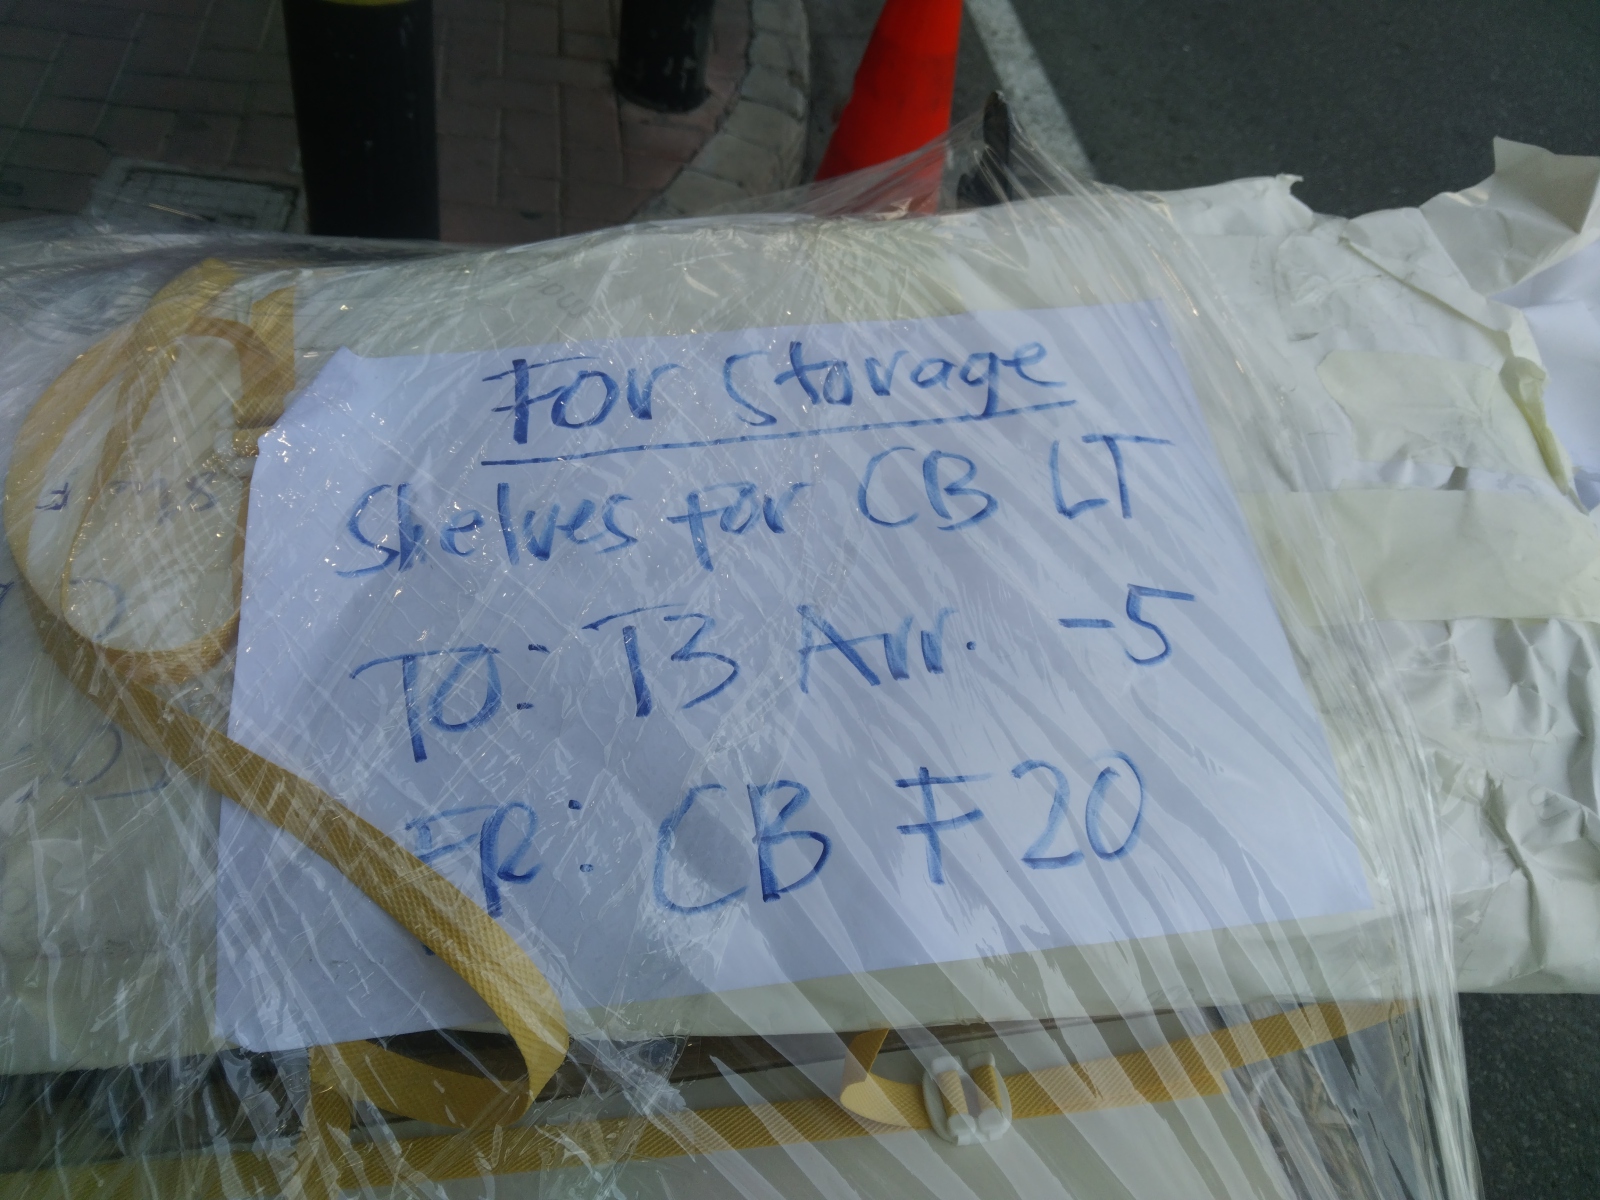 For Storage
Shelves for CB LT
TO: T3 Arr. -5
FR: CB F20